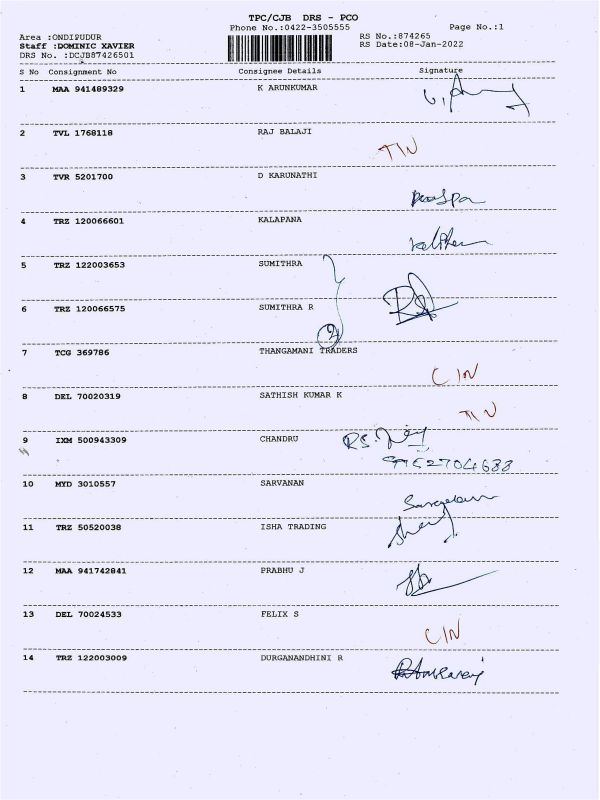 TPC/CJB DRS - PCO
Phone No.:0422-3505555 Page No.:1
Area :ONDIPUDUR RS No.:874265
Staff :DOMINIC XAVIER RS Date:08-Jan-2022
DRS No. :DCJB87426501
S No Consignment No Consignee Details Signature
1 MAA 941489329 K ARUNKUMAR
2 TVL 1768118 RAJ BALAJI
TIN
3 TVR 5201700 D KARUNATHI
4 TRZ 120066601 KALAPANA
5 TRZ 122003653 SUMITHRA
6 TRZ 120066575 SUMITHRA R
2
7 TCG 369786 THANGAMANI TRADERS
CIN
8 DEL 70020319 SATHISH KUMAR K
TIN
9 IXM 500943309 CHANDRU
10 MYD 3010557 SARVANAN
11 TRZ 50520038 ISHA TRADING
12 MAA 941742841 PRABHU J
13 DEL 70024533 FELIX S
CIN
14 TRZ 122003009 DURGANANDHINI R